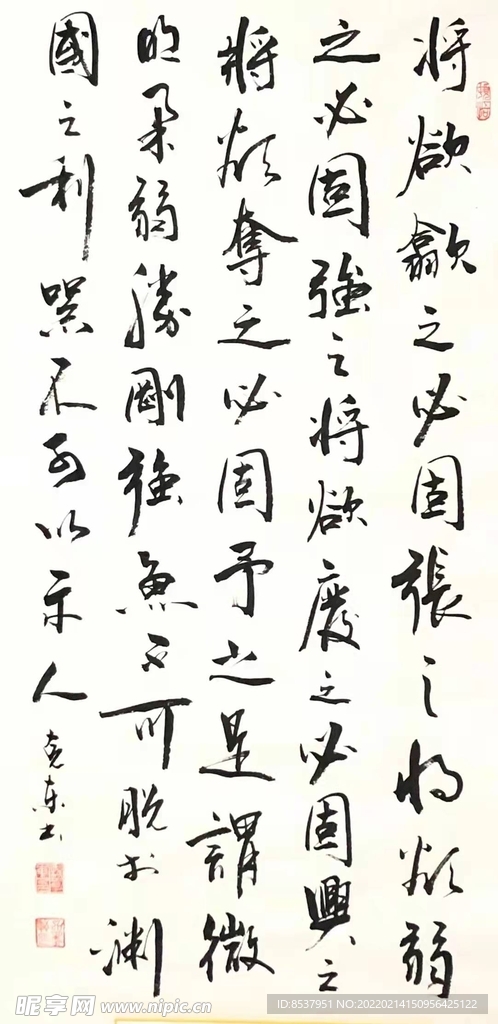 將欲歙之必固張之將欲弱
之必固強之將欲廢之必固興之
將欲奪之必固予之是謂微
明柔弱勝剛強魚不可脫於淵
國之利器不可以示人
堯東书
昵享网 www.nipic.cn
ID:8537951 NO:20220214150956425122